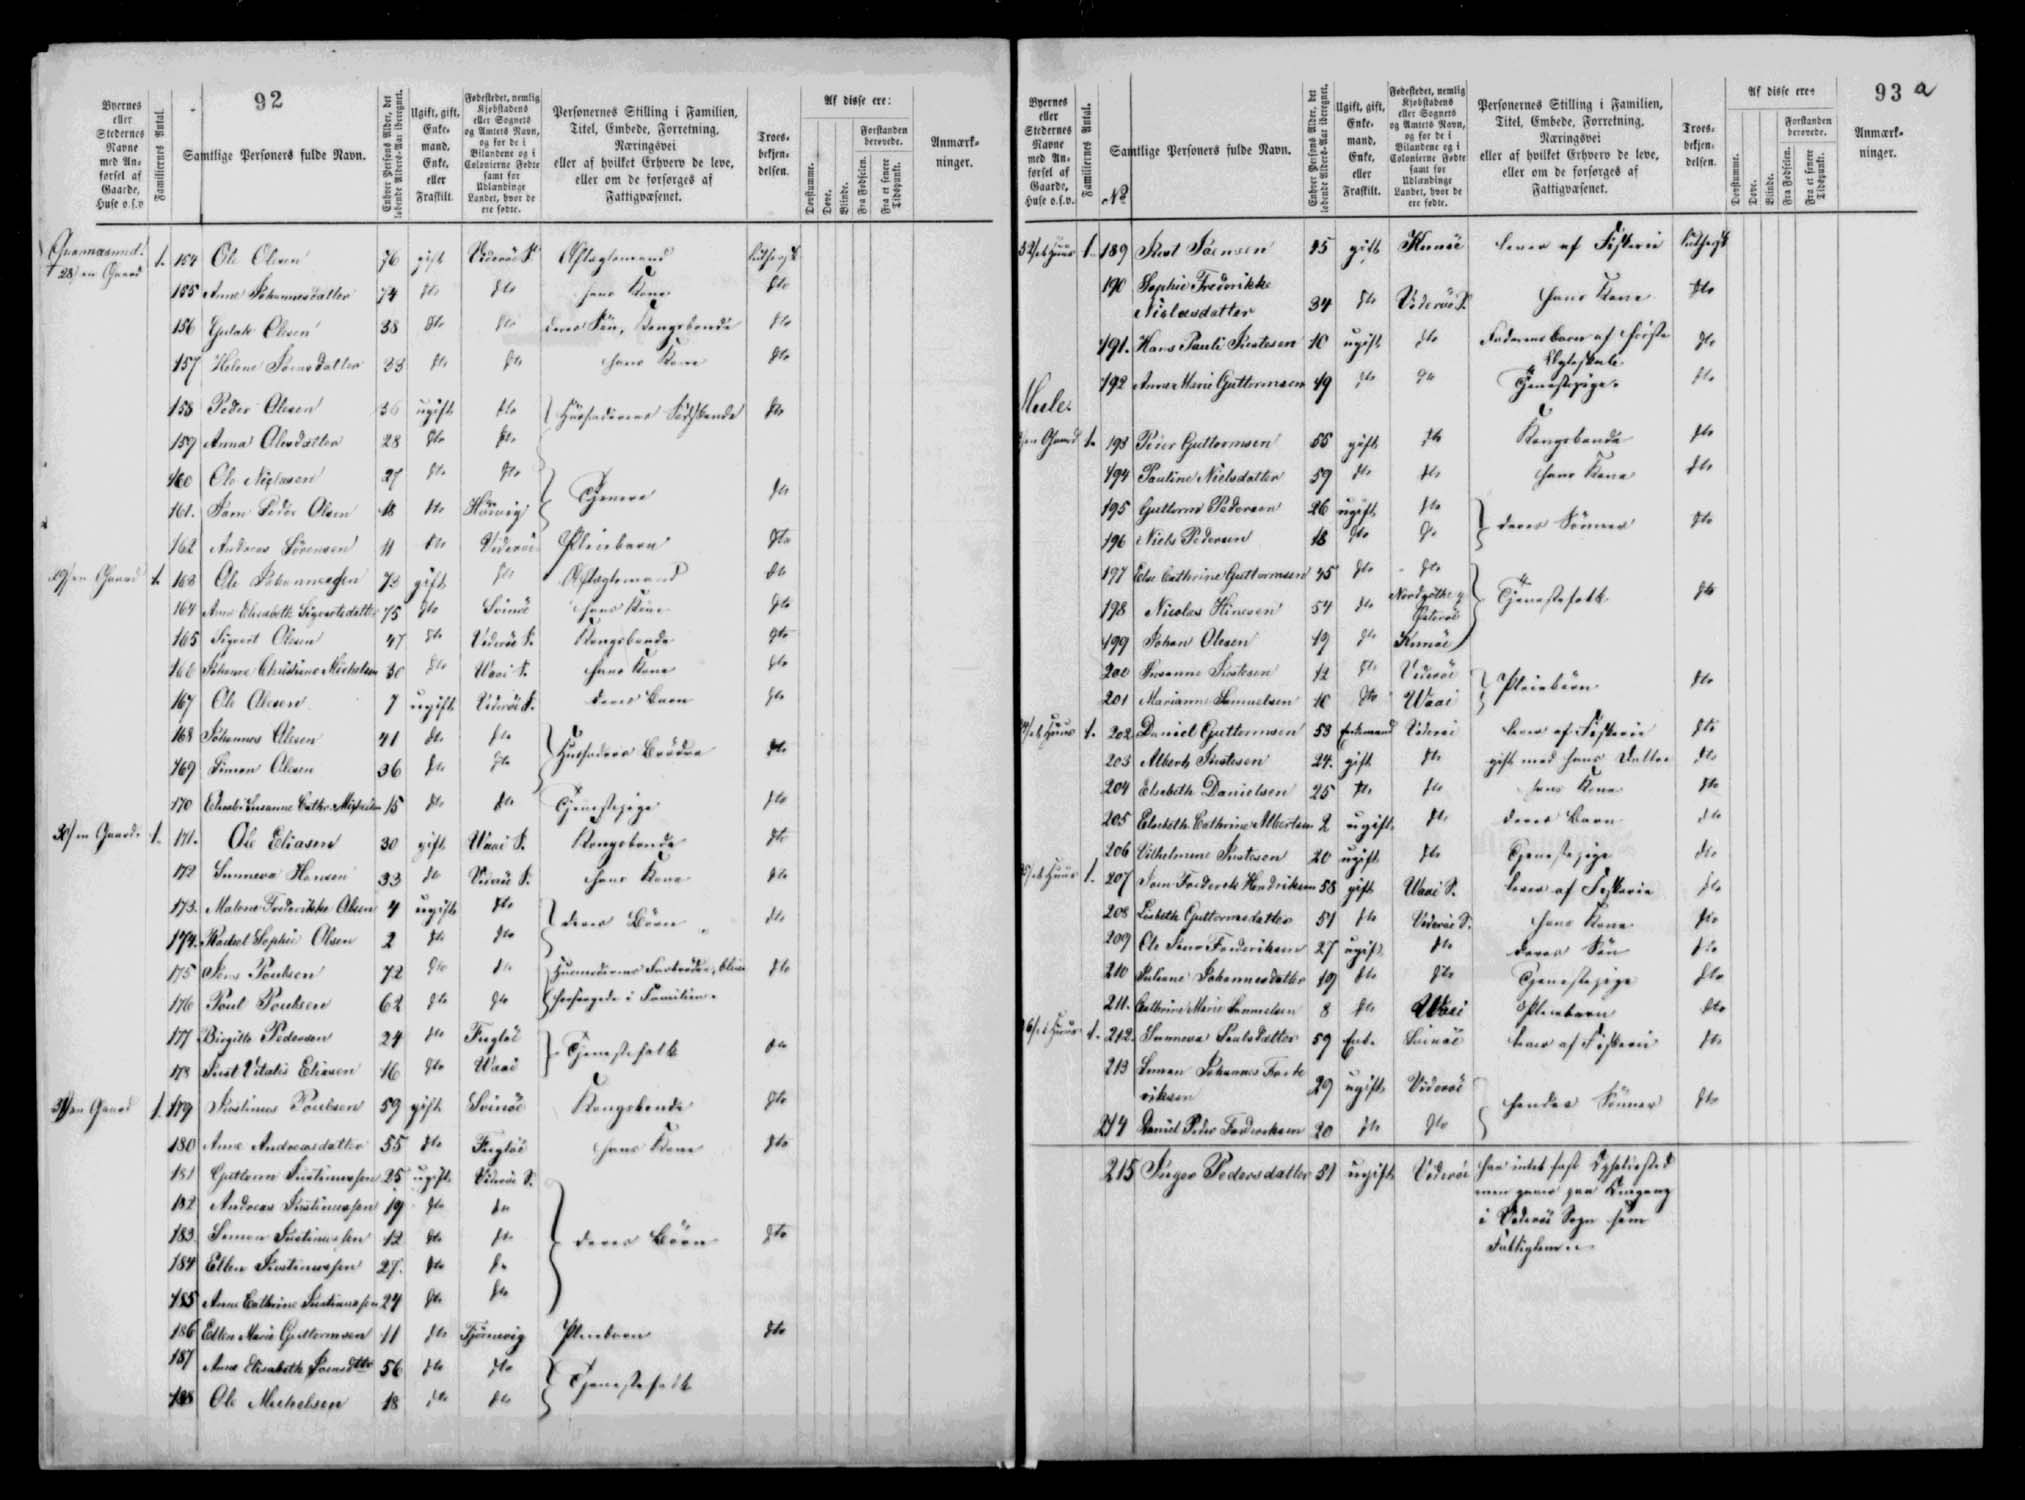 92
Byernes eller Stedernes Navne med Anførsel af Gaarde, Huse o.s.v.
Familiernes Antal.
Samtlige Personers fulde Navn.
Enhver Persons Alder, det løbende Alders-Aar iberegnet.
Ugift, gift, Enkemand, Enke, eller Fraskilt.
Fødestedet, nemlig Kjøbstadens eller Sognets og Amtets Navn, og for de i Bilandene og i Colonierne Fødte samt for Udlændinge Landet, hvor de ere fødte.
Personernes Stilling i Familien, Titel, Embede, Forretning, Næringsvei eller af hvilket Erhverv de leve, eller om de forsørges af Fattigvæsenet.
Troesbekjendelsen.
Af disse ere:
Døvstumme.
Døve.
Blinde.
Forstanden berøvede.
Fra Fødselen.
Fra et senere Tidspunkt.
Anmærkninger.
28/ en Gaard 1. 154 Ole Olesen 76 gift Viderøe S. Aftægtsmand luthersk
155 Anne Johannesdatter 74 dto dto hans Kone dto
156 Olesen 38 dto dto deres Søn, Kongsbonde dto
157 Helene Joensdatter 33 dto dto hans Kone dto
158 Peder Olesen 36 ugift dto Huusfaderens Sødskende dto
159 Anna Olesdatter 28 dto dto
160 Ole Niclasen 27 dto dto Tjenere dto
161. Joen Peder Olsen 18 dto
162 Andreas Sörensen 11 dto Viderøe Pleiebarn dto
29/ en Gaard 1. 163 Ole Johannessen 73 gift dto Aftægtsmand dto
164 Anne Elisabeth Sigvertsdatter 75 dto Svinöe hans Kone dto
165 Sigvert Olesen 47 dto Viderøe S. Kongsbonde dto
166 Johanne Christine Michelsen 30 dto Waai S. hans Kone dto
167 Ole Olesen 7 ugift Viderøe S. deres Barn dto
168 Johannes Olesen 41 dto dto Huusfaders Brödre dto
169 Simon Olesen 36 dto dto
170 Elisabeth Susanne Cathr. 15 dto dto Tjenestepige dto
30/ en Gaard 1. 171. Ole Eliasen 30 gift Waai S. Kongsbonde dto
172 Sunneva Hansen 33 dto Viderøe S. hans Kone dto
173. Malene Frederikke Olsen 4 ugift dto deres Börn dto
174. Rachel Sophie Olsen 2 dto dto
175 Jens Poulsen 72 dto dto Huusmoderens , blive dto
176 Poul Poulsen 62 dto dto forsørgede i Familien.
177 Birgitte Pedersen 24 dto Fugloe Tjenestefolk dto
178 Just Vitalis Eliasen 16 dto Waai
31/ en Gaard 1. 179 Justinus Poulsen 59 gift Svinöe Kongsbonde dto
180 Anne Andreasdatter 55 dto Fugloe hans Kone dto
181 Guttorm Justinussen 25 ugift Viderøe S.
182 Andreas Justinussen 19 dto dto
183. Simon Justinussen 12 dto dto deres Börn dto
184 Ellen Justinussen 27. dto dto
185 Anne Cathrine Justinussen 24 dto dto
186 Ellen Marie Guttormsen 11 dto Tjörnevig Pleiebarn dto
187 Anne Elisabeth Joensdtr 56 dto dto Tjenestefolk
188 Ole Michelsen 18 dto dto
93 a
Byernes eller Stedernes Navne med Anførsel af Gaarde, Huse o.s.v.
Familiernes Antal.
No
Samtlige Personers fulde Navn.
Enhver Persons Alder, det løbende Alders-Aar iberegnet.
Ugift, gift, Enkemand, Enke, eller Fraskilt.
Fødestedet, nemlig Kjøbstadens eller Sognets og Amtets Navn, og for de i Bilandene og i Colonierne Fødte samt for Udlændinge Landet, hvor de ere fødte.
Personernes Stilling i Familien, Titel, Embede, Forretning, Næringsvei eller af hvilket Erhverv de leve, eller om de forsørges af Fattigvæsenet.
Troesbekjendelsen.
Af disse ere:
Døvstumme.
Døve.
Blinde.
Forstanden berøvede.
Fra Fødselen.
Fra et senere Tidspunkt.
Anmærkninger.
32/ et Huus 1. 189 Just Joensen 45 gift Kunöe lever af Fiskerie luthersk
190 Sophie Frederikke
Niclasdatter 34 dto Viderøe S. hans Kone dto
191. Hans Pauli Justesen 10 ugift dto Faderens barn af første dto
Ægteskab
192 Anne Marie Guttormsen 49 dto dto Tjenestepige. dto
Mule.
en Gaard 1. 193 Peder Guttormsen 55 gift dto Kongsbonde dto
194 Pauline Nielsdatter 59 dto dto hans Kone dto
195 Guttorm Pedersen 26 ugift dto deres Sönner dto
196 Niels Pedersen 18 dto dto
197 Else Cathrine Guttormsen 45 dto dto
198 Nicolas Hinesen 54 dto Nordgöthe Österöe Tjenestefolk dto
199 Johan Olesen 19 dto Kunöe
200 Susanne Justesen 12 dto Viderøe Pleiebörn dto
201 Marianne Samuelsen 10 dto Waai
et Huus 1. 202 Daniel Guttormsen 53 Enkemand Viderøe lever af Fiskerie dto
203 Albert Justesen 24. gift dto gift med hans Datter dto
204 Elsebeth Danielsen 25 dto dto hans Kone dto
205 Elsebeth Cathrine Albertsen 2 ugift dto deres Barn dto
206 Vilhelmine Justesen 20 ugift dto Tjenestepige dto
et Huus 1. 207 Joen Frederik Hendriksen 58 gift Waai S. lever af Fiskerie dto
208 Lisbeth Guttormsdatter 51 dto Viderøe S. hans Kone dto
209 Ole Jens Frederiksen 27 ugift dto deres Sön dto
210 Juliane Johannesdatter 19 dto dto Tjenestepige dto
211. Cathrine Marie Samuelsen 8 dto Waai Pleiebarn dto
et Huus 1. 212. Sunneva Poulsdatter 59 Enke Svinöe lever af Fiskerie dto
213 Simon Johannes Frede
riksen 29 ugift Viderøe hendes Sönner dto
214 Daniel Peder Frederiksen 20 dto dto
215 Inger Pedersdatter 51 ugift Viderøe har intet fast Opholdssted
men gaaer paa Omgang
i Viderøe Sogn som
Fattiglem